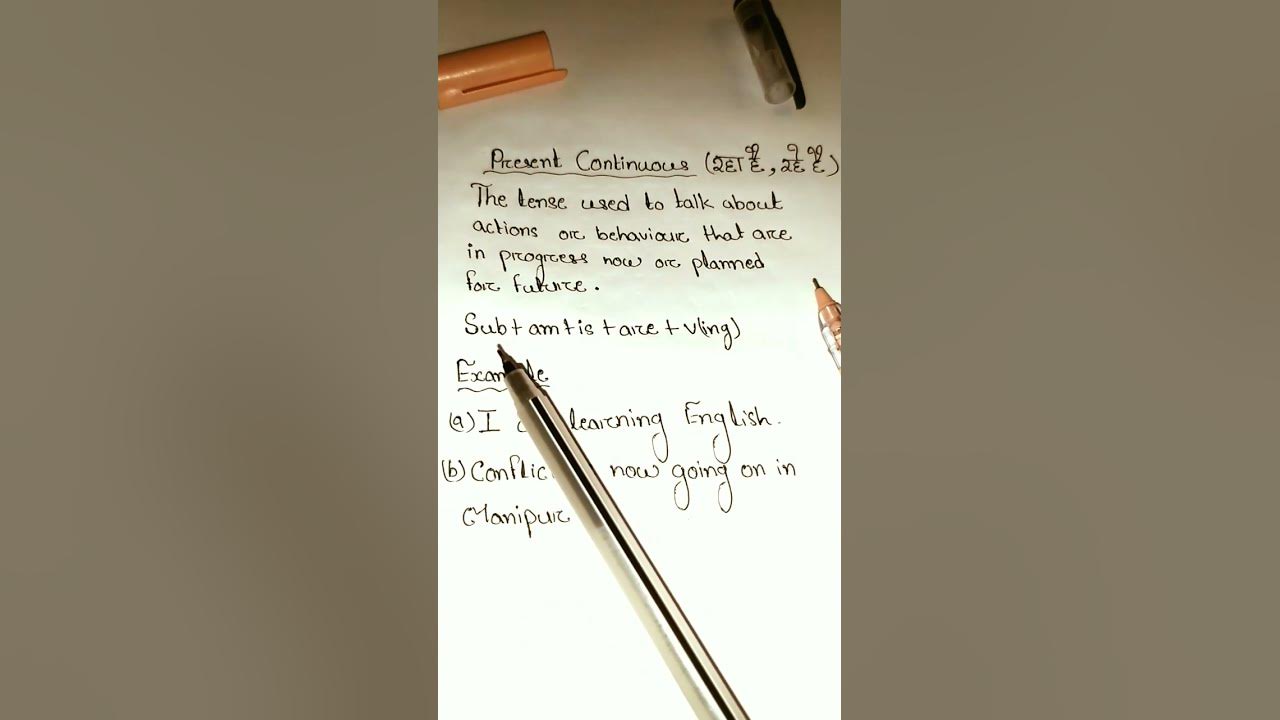 Present Continuous (रहा है, रहे हैं)
The tense used to talk about
actions or behaviour that are
in progress now or planned
for future.
Sub + am + is + are + v(ing)
Example
(a) I learning English.
(b) now going on in
Manipur